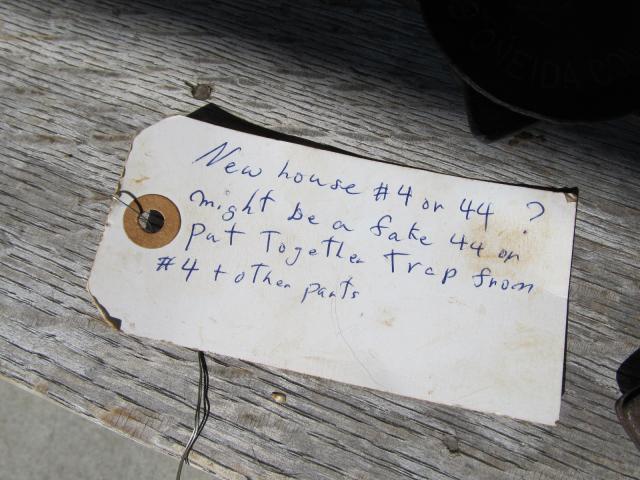 ONEIDA COM
New house #4 or 44 ?
might be a fake 44 or
put Together trap from
#4 + other parts